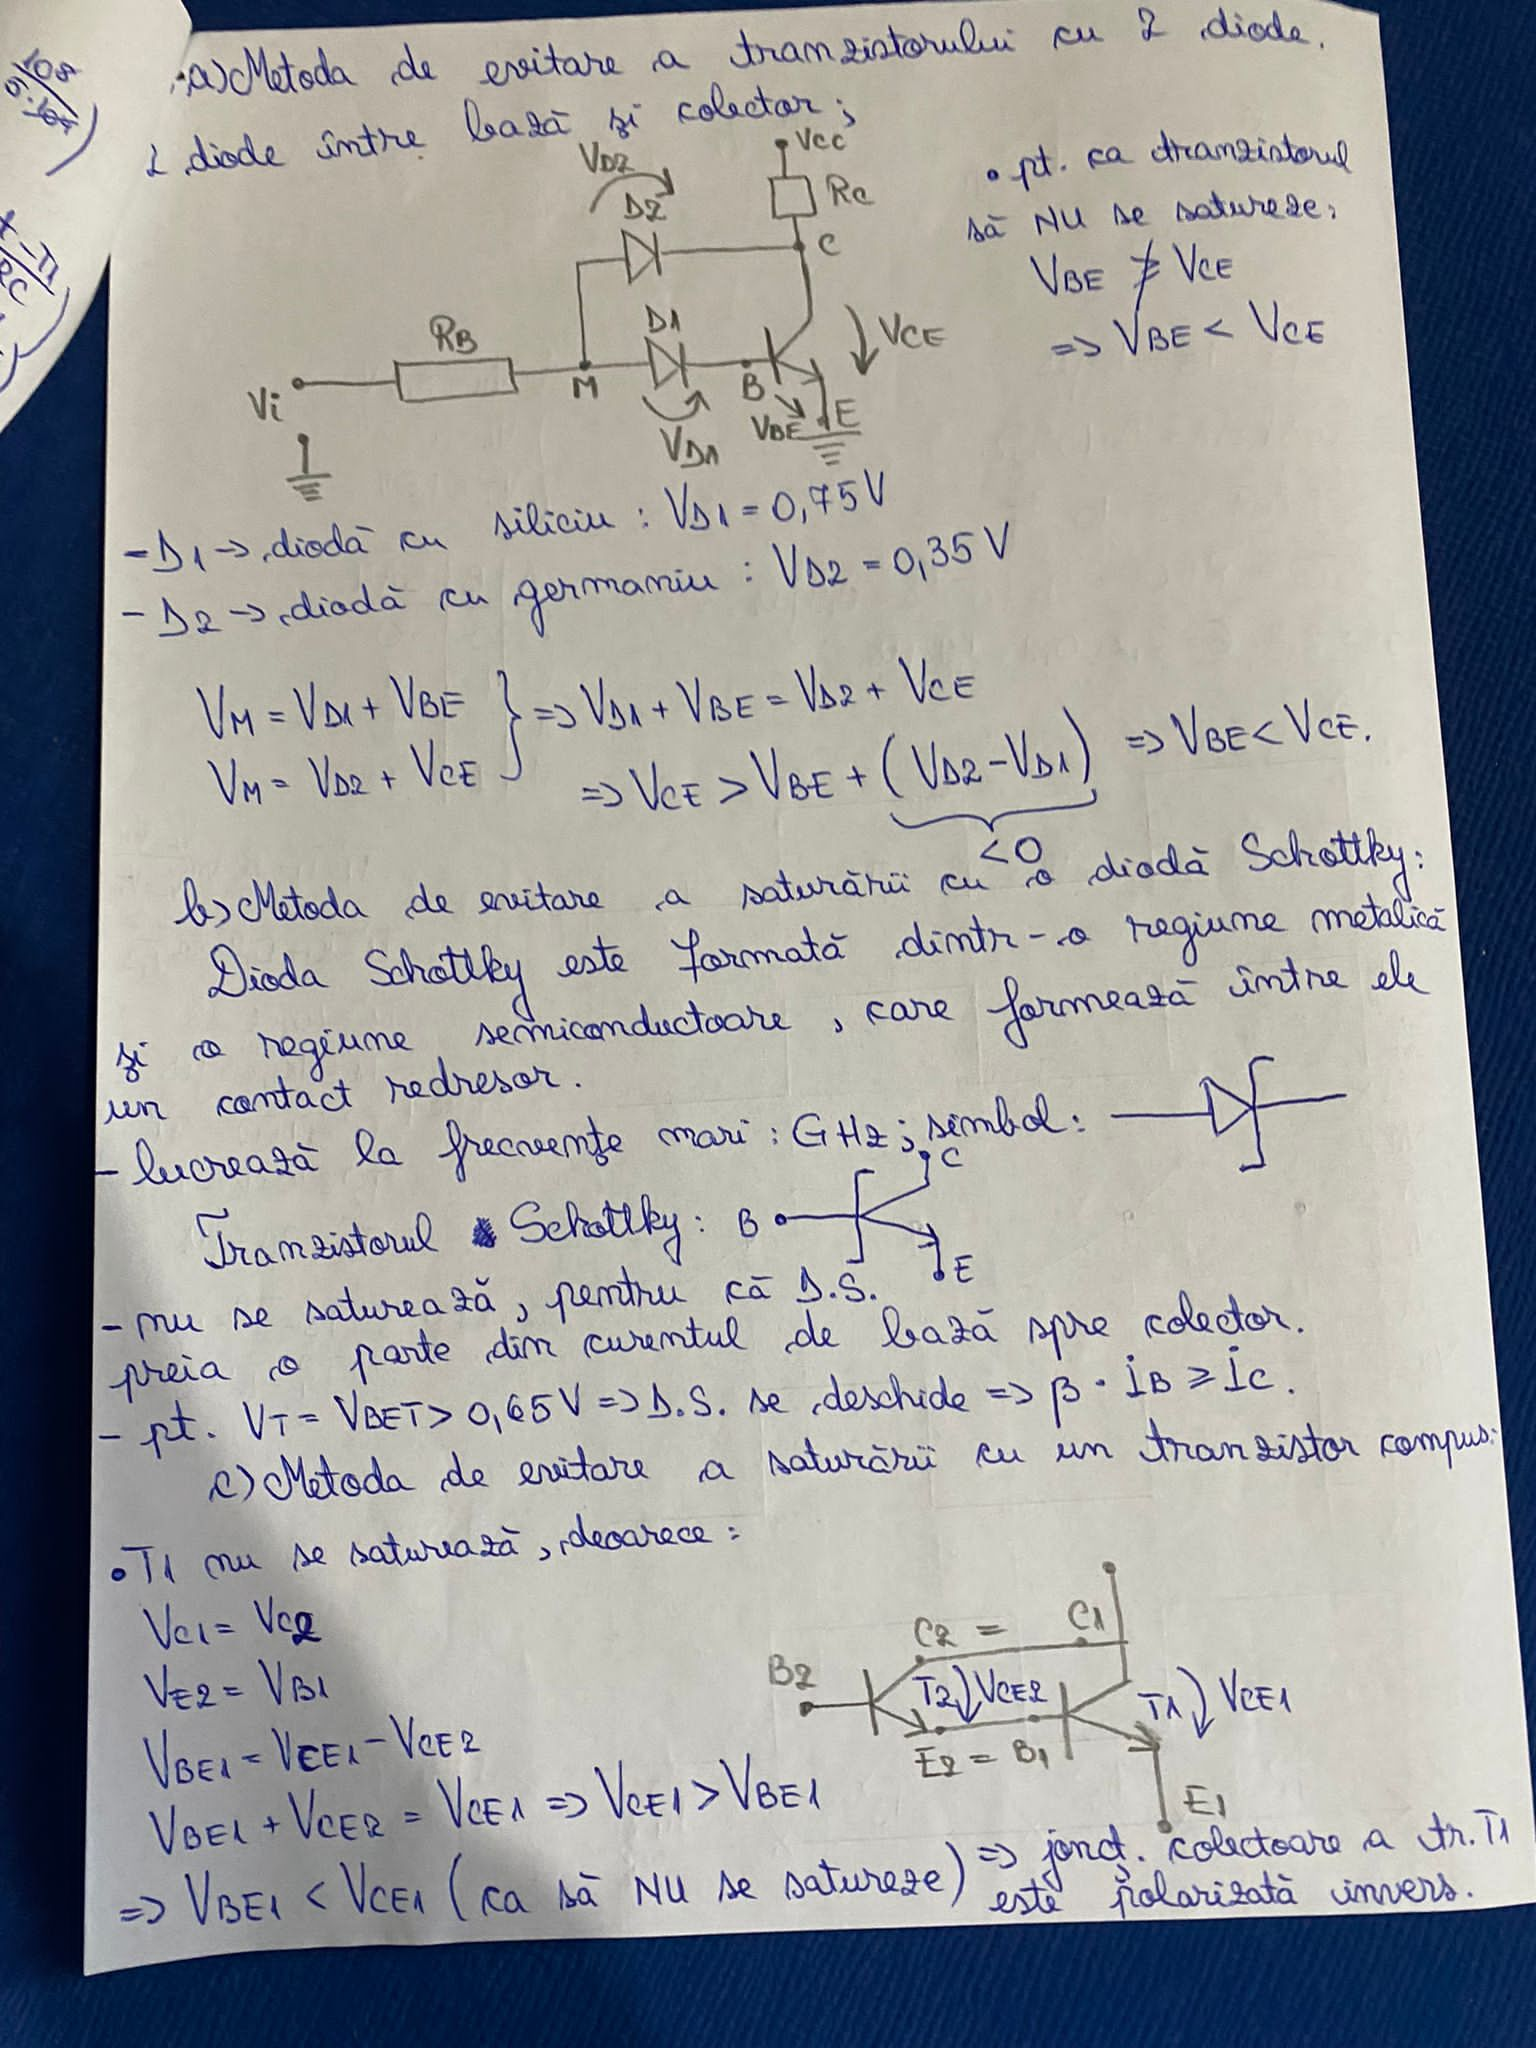 a) Metoda de evitare a tranzistorului cu 2 diode.
2 diode între bază și colector;
VD2
D2
Vcc
Rc
C
RB
D1
M
B
VCE
Vi
VD1
VBE
E
• pt. ca tranzistorul
să NU se satureze:
VBE ≱ VCE
=> VBE < VCE
- D1 -> diodă cu siliciu : VD1 = 0,75V
- D2 -> diodă cu germaniu : VD2 = 0,35V
VM = VD1 + VBE } => VD1 + VBE = VD2 + VCE
VM = VD2 + VCE => VCE > VBE + (VD2 - VD1) => VBE < VCE.
< 0
b) Metoda de evitare a saturării cu o diodă Schottky:
Dioda Schottky este formată dintr-o regiune metalică
și o regiune semiconductoare, care formează între ele
un contact redresor.
- lucrează la frecvențe mari : GHz ; simbol :
Tranzistorul Schottky: B
C
E
- nu se saturează, pentru că D.S.
preia o parte din curentul de bază spre colector.
- pt. VT = VBET > 0,65V => D.S. se deschide => β · iB ≥ iC.
c) Metoda de evitare a saturării cu un tranzistor compus:
• T1 nu se saturează, deoarece :
VC1 = VC2
VE2 = VB1
VBE1 = VCE1 - VCE2
VBE1 + VCE2 = VCE1 => VCE1 > VBE1
=> VBE1 < VCE1 (ca să NU se satureze) => joncț. colectoare a tr. T1
este polarizată invers.
C2 = C1
B2
T2 VCE2
T1 VCE1
E2 = B1
E1